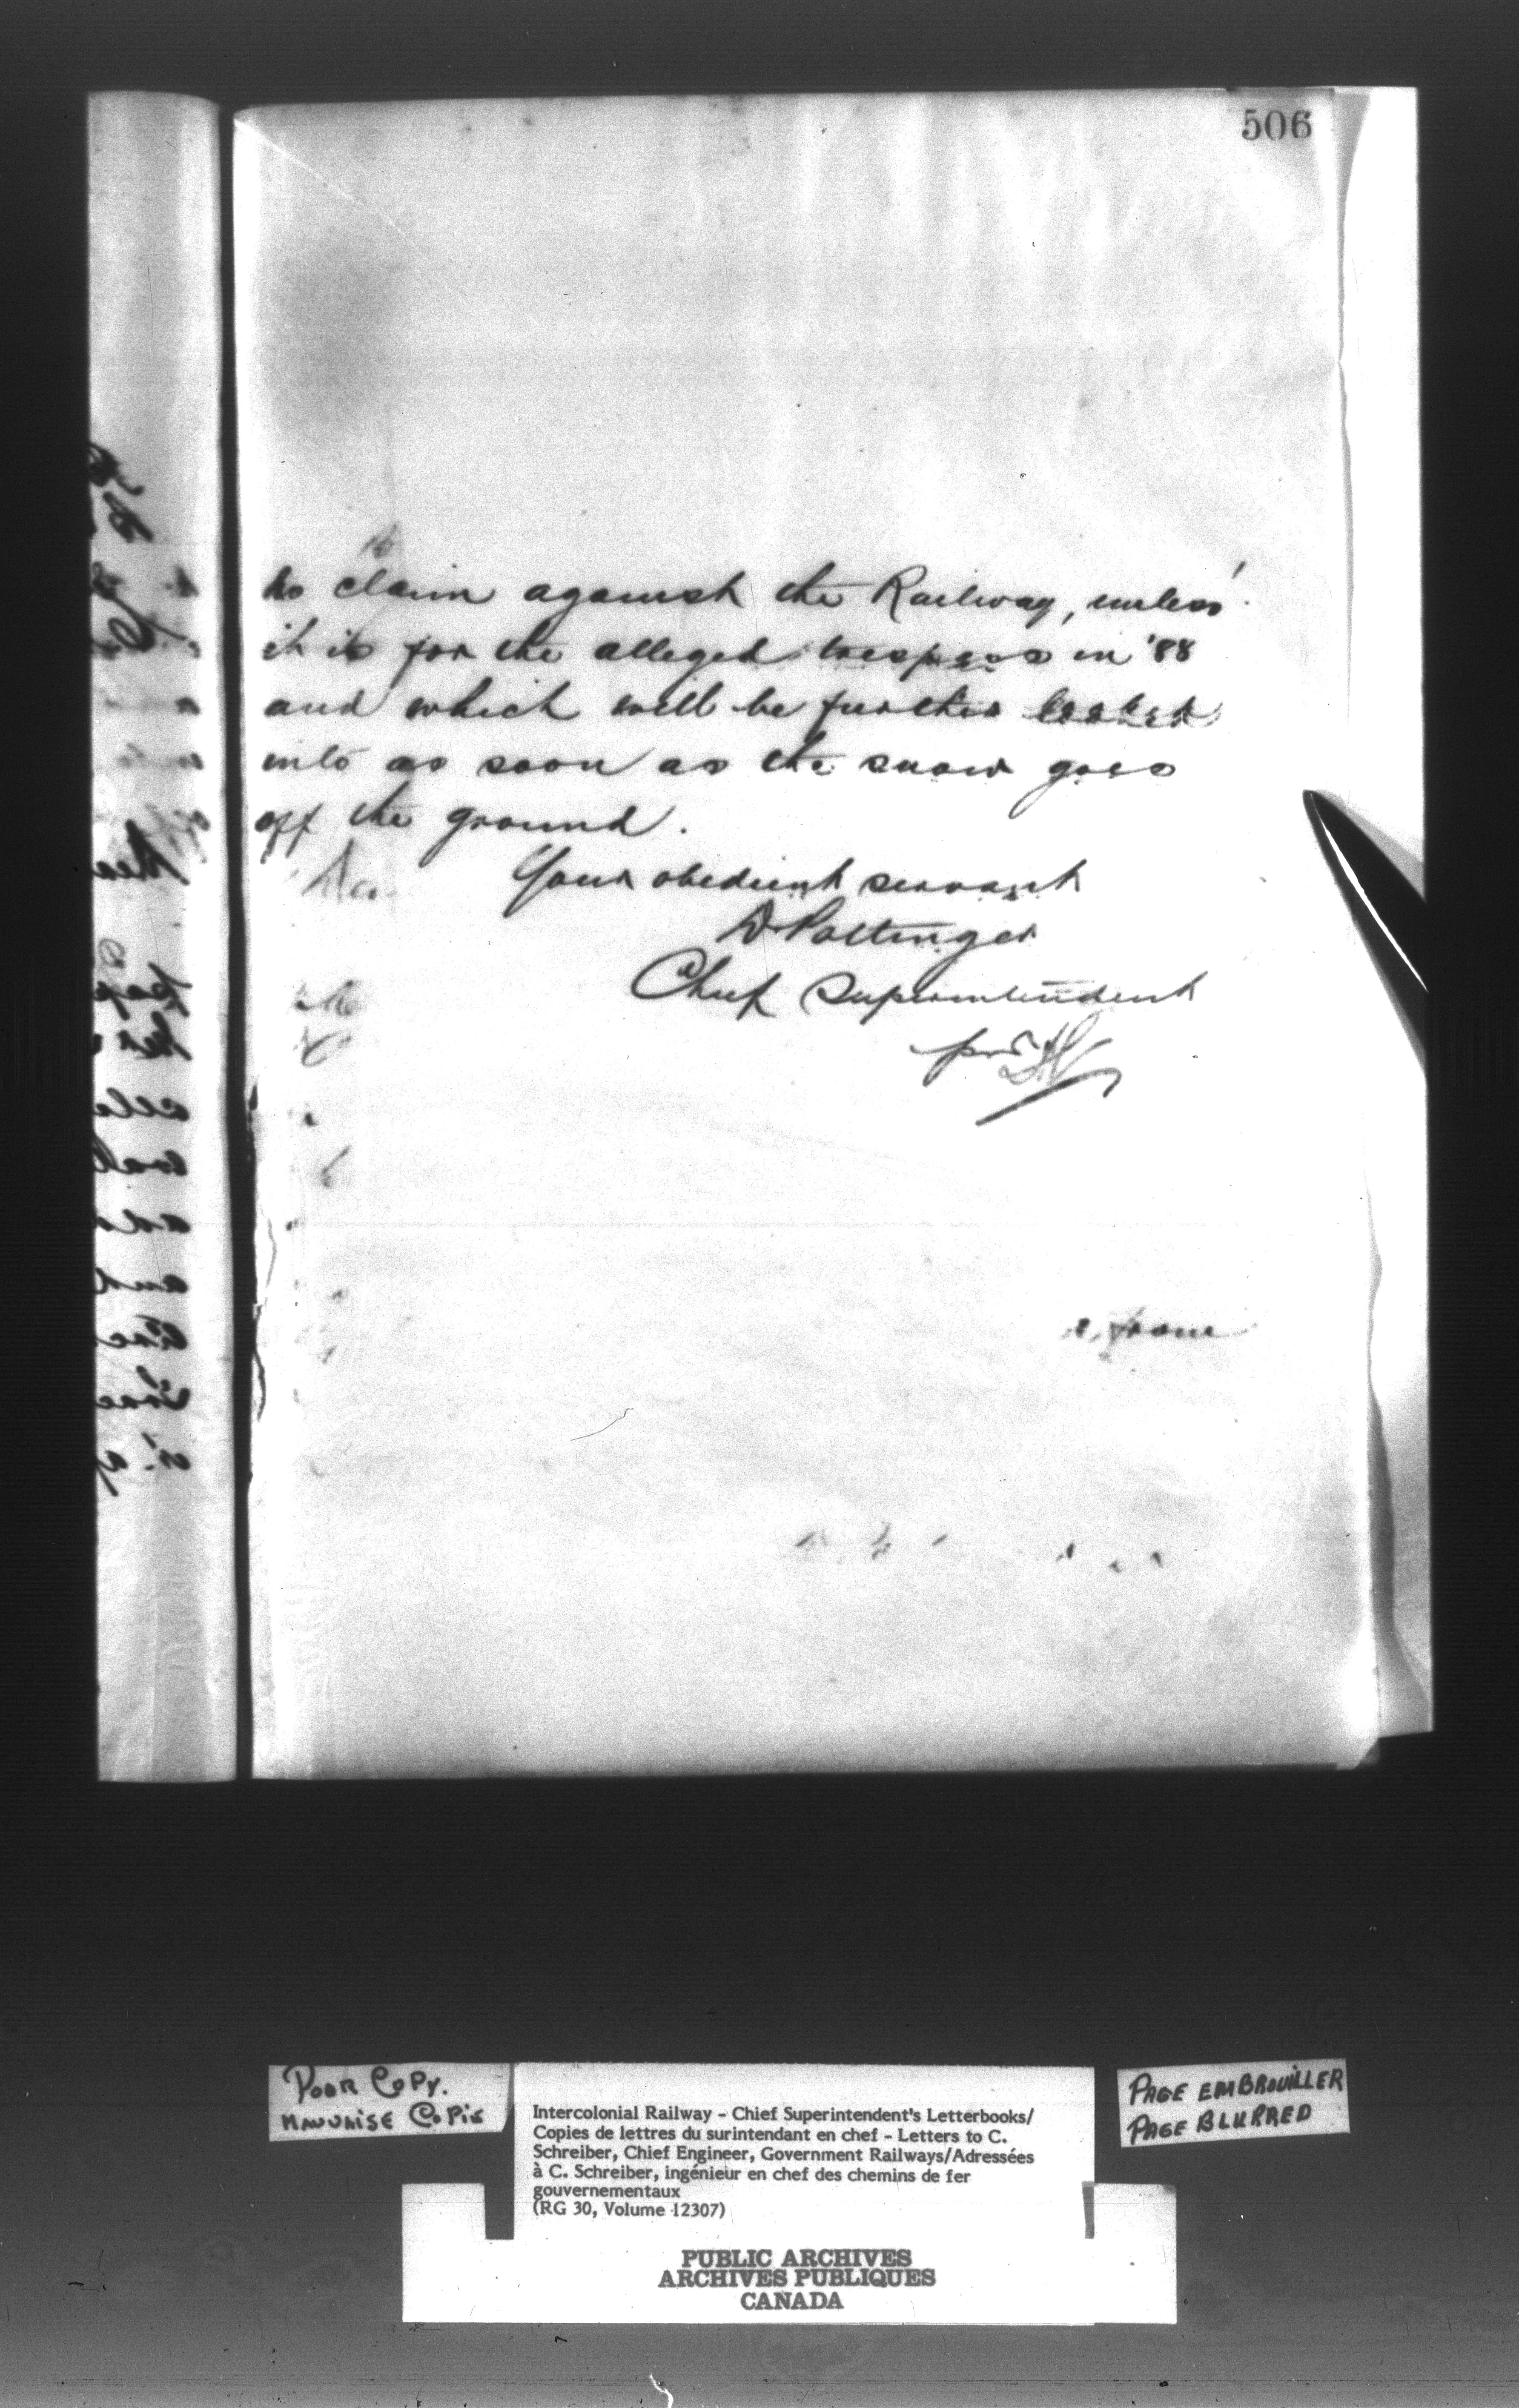 506
no claim against the Railway, unless
it is for the alleged trespass in '88
and which will be further looked
into as soon as the snow goes
off the ground.
Your obedient servant
D Pottinger
Chief Superintendent
per
from
POOR COPY.
MAUVAISE COPIE
Intercolonial Railway - Chief Superintendent's Letterbooks/
Copies de lettres du surintendant en chef - Letters to C.
Schreiber, Chief Engineer, Government Railways/Adressées
à C. Schreiber, ingénieur en chef des chemins de fer
gouvernementaux
(RG 30, Volume 12307)
PAGE EMBROUILLER
PAGE BLURRED
PUBLIC ARCHIVES
ARCHIVES PUBLIQUES
CANADA